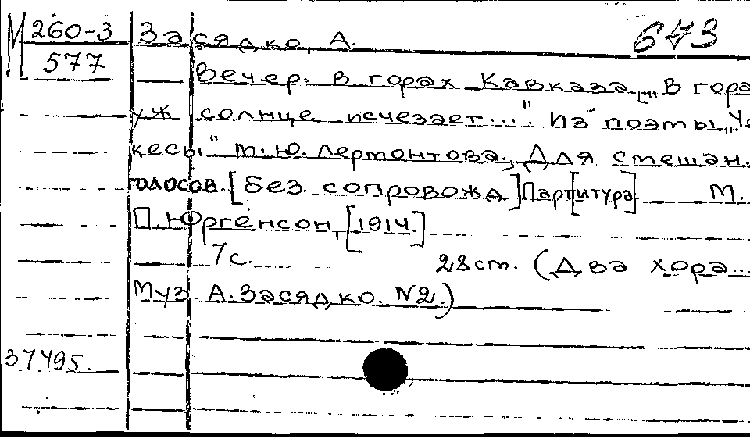 М 260-3 Засядко, А. 643
577 Вечер в горах Кавказа „В гора
уж солнце исчезает..." Из поэмы „Че
кесы" М.Ю. Лермонтова. Для смешан.
голосов. [Без сопровожд] Парт[итура] М.
П. Юргенсон, [1914.]
7 с. 28 ст. (Два хора...
Муз А. Засядко. №2.)
37495.